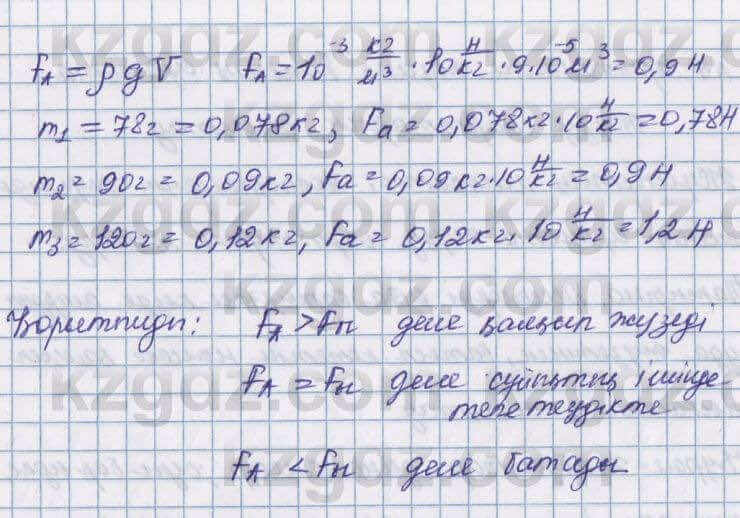 F_A = ρgV F_A = 10⁻³ кг/м³ · 10 Н/кг · 9·10⁻⁵ м³ = 0,9Н
m₁ = 78г = 0,078кг, Fa = 0,078кг·10 Н/кг = 0,78Н
m₂ = 90г = 0,09кг, Fa = 0,09кг·10 Н/кг = 0,9Н
m₃ = 120г = 0,12кг, Fa = 0,12кг· 10 Н/кг = 1,2Н
Қорытынды: F_A > F_H дене қалқып жүзеді
F_A = F_H дене сұйықтың ішінде
тепе теңдікте
F_A < F_H дене батады
kzgdz.com